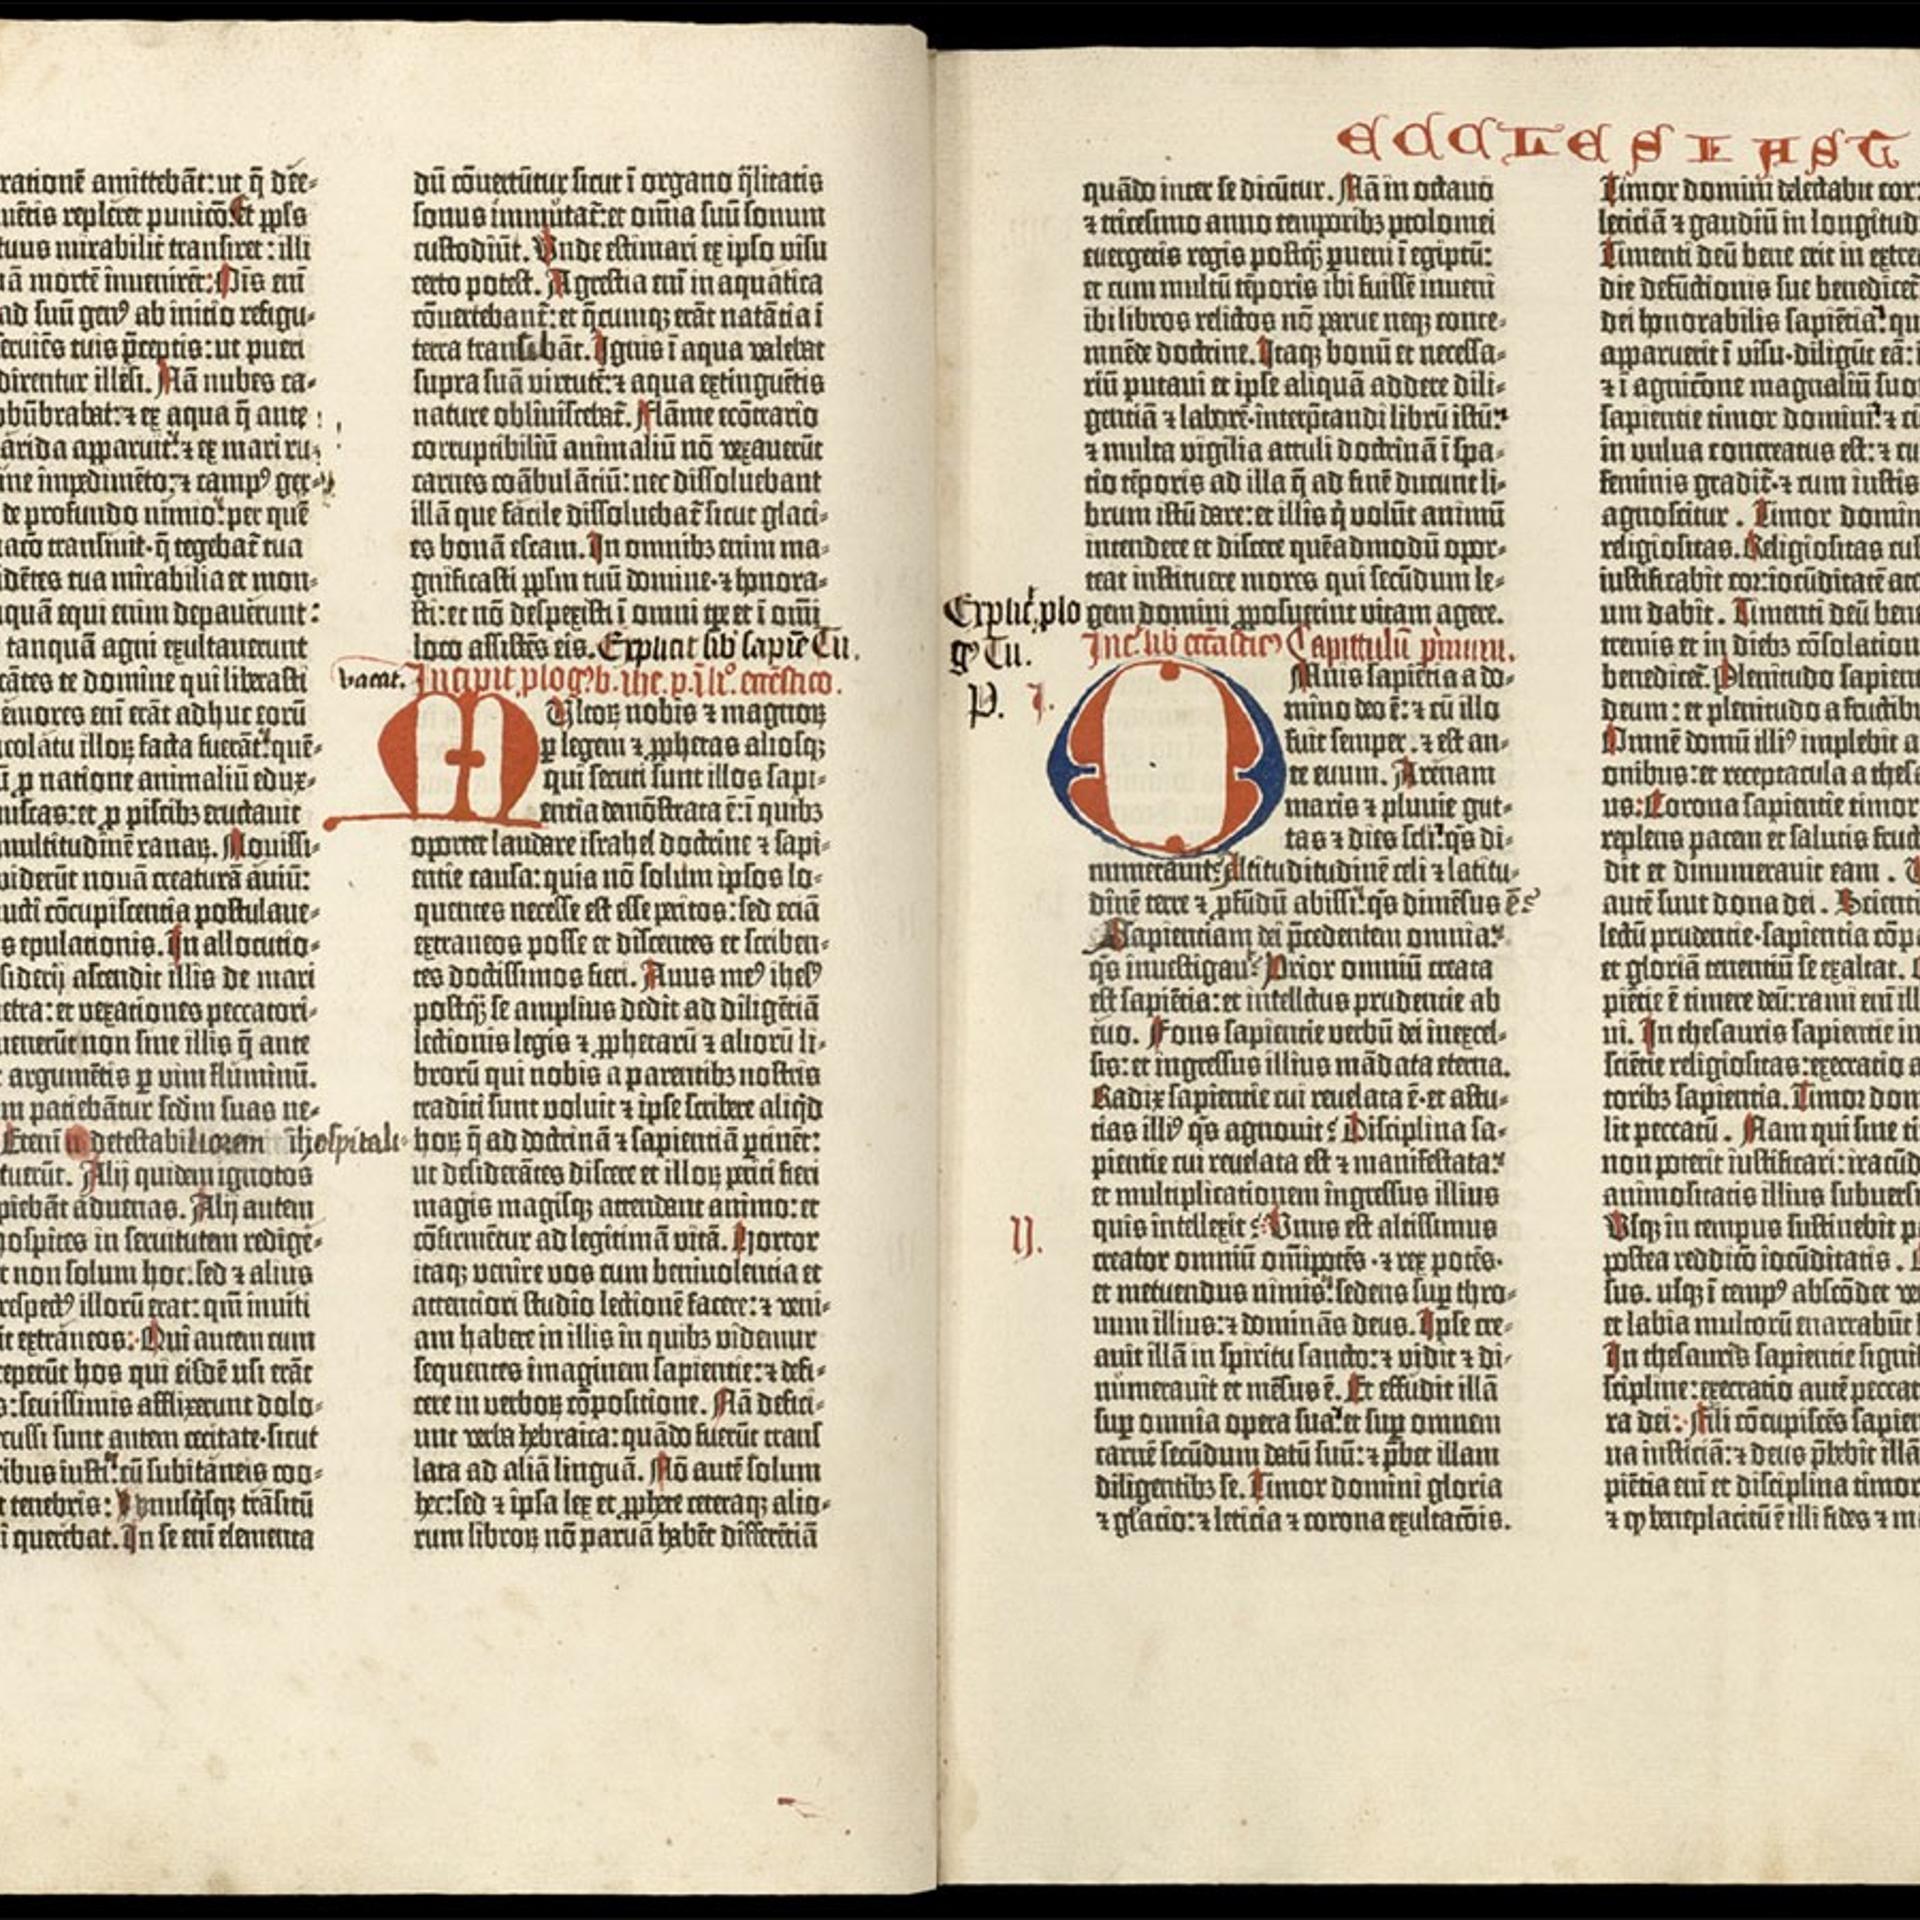 rationē amittebāt: ut q̄ dee-
mētis repleret punicō. Et pp̄ls
tuus mirabilit̄ transiret: illi
uā mortē inuenirēt: Ois eni
ad suū genꝰ ab initio refigu-
eruiēs tuis p̄ceptis: ut pueri
direntur illesi. Nā nubes ca-
obūbrabat: ⁊ ex aqua q̄ ante
arida apparuit: ⁊ ex mari ru-
ine impedimēto: ⁊ campꝰ ger-
de profundo nimio: per quē
nacō transiuit· q̄ tegebat̄ tua
idētes tua mirabilia et mon-
quā equi enim depauerunt:
tanquā agni exultauerunt
cātes te domine qui liberasti
emores eni erāt adhuc eorū
colatu illoꝝ facta fuerāt: quē-
ū ꝓ natione animaliū edux-
uiscas: et ꝓ piscibꝫ eructauit
multitudinē ranaꝝ. Nouissi-
viderūt nouā creaturā auiū:
ucti cōcupiscentia postulaue-
s epulationis. In allocutio-
siderij ascendit illis de mari
etra: et vexationes peccatori-
uenerūt non sine illis q̄ ante
argumētis ꝑ vim fluminū.
m patiebātur scdm suas ne-
Etenī detestabiliorem īhospitali-
tuerūt. Alij quidem ignotos
piebāt aduenas. Alij autem
hospites in seruitutem redige-
t non solum hoc. sed ⁊ alius
respectꝰ illorū erat: qm̄ inuiti
it extraneos: Qui autem cum
ceperūt hos qui eisdē usi erāt
s: seuissimis afflixerunt dolo-
cussi sunt autem cecitate· sicut
ribus iusti: cū subitaneis coo-
t tenebris: Vnusq̄sqꝫ trāsitū
i querebat. In se eni elementa
dū cōuertūtur sicut ī organo q̄litatis
sonus immutat̄: et omīa suū sonum
custodiūt. Vnde estimari ex ipso visu
certo potest. Agrestia eni in aquatica
cōuertebant̄: et q̄cunqꝫ erāt natātia ī
terra transibāt. Ignis ī aqua valebat
supra suā virtutē: ⁊ aqua extinguētis
nature obliuiscebat̄. Flāme econtrario
corruptibiliū animaliū nō vexauerūt
carnes coābulātiū: nec dissoluebant
illā que facile dissoluebat̄ sicut glaci-
es bonā escam. In omnibꝫ enim ma-
gnificasti pp̄lm tuū domine· ⁊ honora-
sti: et nō despexisti ī omni tꝑe et ī omī
loco assistēs eis. Explicit lib sapiē Cū.
vacat. Incipit plog
Vltoꝝ nobis ⁊ magnoꝝ
ꝑ legem ⁊ ꝓphetas aliosqꝫ
qui secuti sunt illos sapi-
entia demōstrata ē: ī quibꝫ
oportet laudare israhel doctrine ⁊ sapi-
entie causa: quia nō solum ipsos lo-
quentes necesse est esse peritos: sed eciā
extraneos posse et discentes et scriben-
tes doctissimos fieri. Auus meꝰ ihesꝰ
postqꝫ se amplius dedit ad diligētiā
lectionis legis ⁊ ꝓphetarū ⁊ aliorū li-
brorū qui nobis a parentibꝫ nostris
traditi sunt voluit ⁊ ipse scribere aliq̄d
hoꝝ q̄ ad doctrinā ⁊ sapientiā ꝑtinēt:
ut desiderātes discere et illoꝝ periti fieri
magis magisqꝫ attendant animo: et
cōfirmētur ad legitimā vitā. Hortor
itaqꝫ venire vos cum beniuolentia et
attentiori studio lectionē facere: ⁊ veni-
am habere in illis in quibꝫ videmur
sequentes imaginem sapientie: ⁊ defi-
cere in verboꝝ cōpositione. Nā defici-
unt verba hebraica: quādo fuerūt trans
lata ad aliā linguā. Nō autē solum
hec: sed ⁊ ipsa lex et ꝓphete ceteraqꝫ alio-
rum libroꝝ nō paruā habēt differētiā
ECCLESIAST
quādo inter se dicūtur. Nā in octauo
⁊ tricesimo anno temporibꝫ ptolomei
euergetis regis postqꝫ ꝑueni ī egiptū:
et cum multū tēporis ibi fuissē inueni
ibi libros relictos nō parue neqꝫ conte-
mnēde doctrine. Itaqꝫ bonū et necessa-
riū putaui et ipse aliquā addere dili-
gentiā ⁊ laborē· interp̄tandi librū istū:
⁊ multa vigilia attuli doctrinā ī spa-
cio tēporis ad illa q̄ ad finē ducunt li-
brum istū dare: et illis q̄ volūt animū
intendere et discere quēadmodū opor-
teat instituere mores qui secūdum le-
Explic̄ plo gem domini ꝓposuerint vitam agere.
gꝰ Cū. Inc̄ lib eccāsticꝰ Capittulū prīmum.
P. I. Mnis sapiētia a do-
mino deo ē: ⁊ cū illo
fuit semper. ⁊ est an-
te euum. Arenam
maris ⁊ pluuie gut-
tas ⁊ dies scli: q̄s di-
numerauit: Altituditudinē celi ⁊ latitu-
dinē terre ⁊ ꝓfūdū abissi: q̄s dimēsus ē?
Sapientiam dei p̄cedentem omnia:
q̄s inuestigauit? Prior omniū creata
est sapiētia: et intellectus prudentie ab
euo. Fons sapientie verbū dei in excel-
sis: et ingressus illius mādata eterna.
Radix sapientie cui reuelata ē· et astu-
tias illiꝰ q̄s agnouit? Disciplina sa-
pientie cui reuelata est ⁊ manifestata:
et multiplicationem ingressus illius
II. quis intellexit? Vnus est altissimus
creator omniū omīpotēs· ⁊ rex potēs·
et metuendus nimis: sedens suꝑ thro-
num illius: ⁊ dominās deus. Ipse cre-
auit illā in spiritu sancto: ⁊ vidit ⁊ di-
numerauit et mēsus ē. Et effudit illā
suꝑ omnia opera sua: et suꝑ omnem
carnē secūdum datū suū: ⁊ p̄bet illam
diligentibꝫ se. Timor domini gloria
⁊ gl̄acio: ⁊ leticia ⁊ corona exultacōis.
Timor domini delectabit cor:
leticiā ⁊ gaudiū in longitud
Timenti deū bene erit in extre
die defūctionis sue benedicet̄
dei honorabilis sapiētia: qu
apparuerit ī visu· diligūt eā: ī
⁊ ī agnicōne magnaliū suoꝝ
sapientie timor domini: ⁊ cū
in vulua concreatus est: ⁊ cū
feminis gradit̄· ⁊ cum iustis
agnoscitur. Timor domin
religiositas. Religiositas cus
iustificabit cor: iocūditatē atq
um dabit. Timenti deū bene
tremis et in diebꝫ cōsolation
benedicet̄. Plenitudo sapient
deum: et plenitudo a fructibu
Omnē domū illiꝰ implebit a
onibus: et receptacula a thesa
us: Corona sapientie timor
replens pacem et salutis fruct
dit et dinumerauit eam.
autē sunt dona dei. Scienti
lectū prudentie· sapientia cōpa
et gloriā tenentiū se exaltat.
piētie ē timere deū: rami eni ill
ni. In thesauris sapientie in
sciētie religiositas: execratio a
toribꝫ sapientia. Timor dom
lit peccatū. Nam qui sine ti
non poterit iustificari: iracūd
animositatis illius subuersi
Vsqꝫ in tempus sustinebit p
postea redditio iocūditatis.
sus. usqꝫ ī tempꝰ abscōdet ve
et labia multorū enarrabūt
In thesauris sapientie signif
scipline: execratio autē peccat
ra dei: Fili cōcupiscēs sapien
na iusticiā: ⁊ deus p̄bebit illā
piētia eni et disciplina timor
⁊ qꝫ beneplacitū ē illi fides ⁊ ma